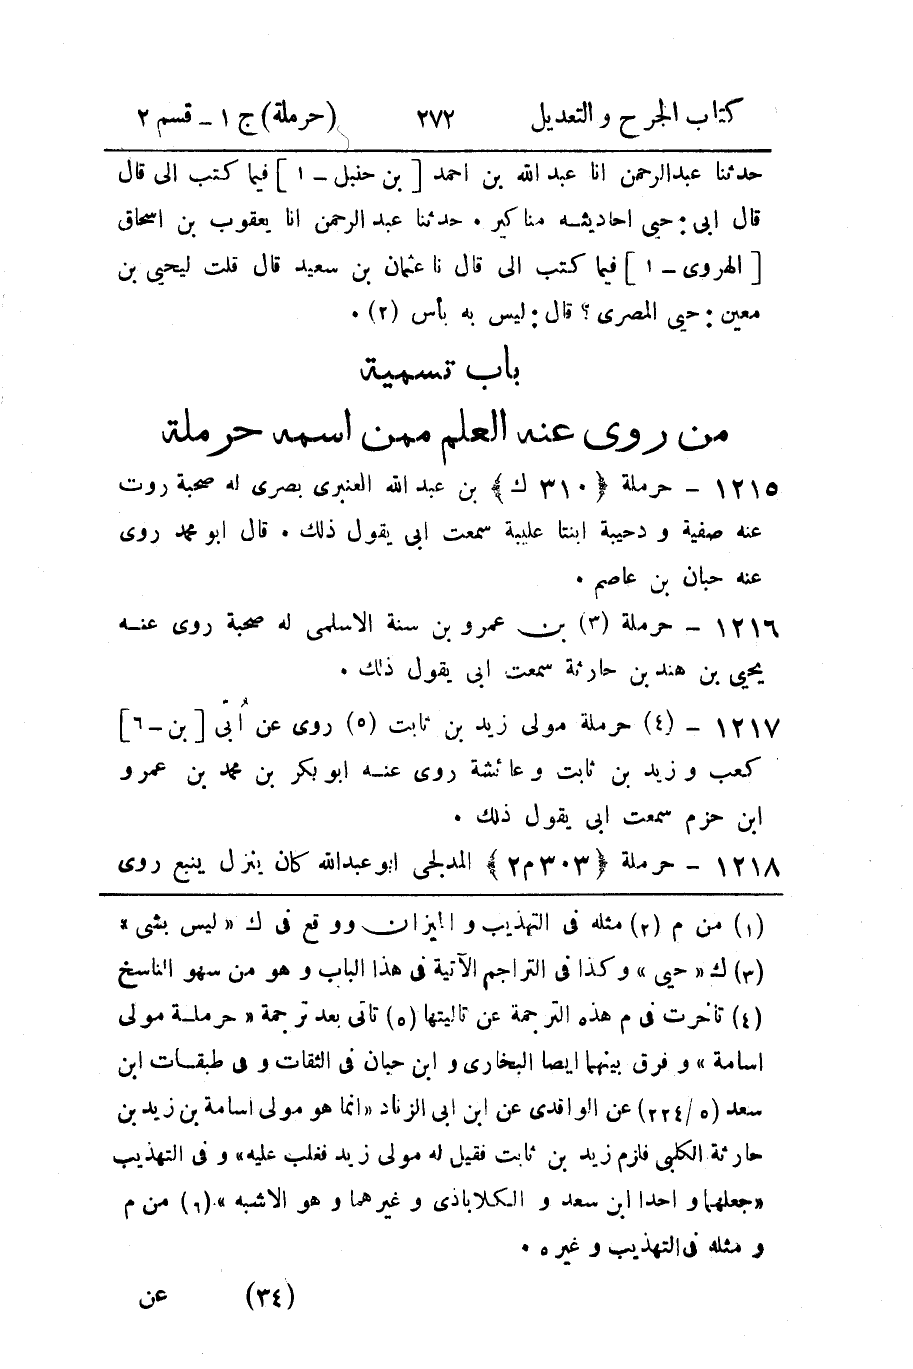 كتاب الجرح و التعديل ٢٧٢ (حرملة) ج ١ - قسم ٢
حدثنا عبدالرحمن انا عبد الله بن احمد [ بن حنبل - ١ ] فيما كتب الى قال
قال ابى : حيى احاديثه مناكير . حدثنا عبد الرحمن انا يعقوب بن اسحاق
[ الهروى - ١ ] فيما كتب الى قال نا عثمان بن سعيد قال قلت ليحيى بن
معين : حيى المصرى ؟ قال : ليس به بأس (٢) .
باب تسمية
من روى عنه العلم ممن اسمه حرملة
١٢١٥ - حرملة ﴿ ٣١٠ ك ﴾ بن عبد الله العنبرى بصرى له صحبة روت
عنه صفية و دحيبة ابنتا عليبة سمعت ابى يقول ذلك . قال ابو محمد روى
عنه حبان بن عاصم .
١٢١٦ - حرملة (٣) بن عمرو بن سنة الاسلمى له صحبة روى عنه
يحيى بن هند بن حارثة سمعت ابى يقول ذلك .
١٢١٧ - (٤) حرملة مولى زيد بن ثابت (٥) روى عن أُبّى [ بن - ٦ ]
كعب و زيد بن ثابت و عائشة روى عنه ابو بكر بن محمد بن عمرو
ابن حزم سمعت ابى يقول ذلك .
١٢١٨ - حرملة ﴿ ٣٠٣ م ٢ ﴾ المدلجى ابو عبدالله كان ينزل ينبع روى
(١) من م (٢) مثله فى التهذيب و الميزان و وقع فى ك « ليس بشى »
(٣) ك « حيى » و كذا فى التراجم الآتية فى هذا الباب و هو من سهو الناسخ
(٤) تأخرت فى م هذه الترجمة عن تاليتها (٥) تاتى بعد ترجمة « حرملة مولى
اسامة » و فرق بينهما ايضا البخارى و ابن حبان فى الثقات و فى طبقات ابن
سعد (٥/ ٢٢٤) عن الواقدى عن ابن ابى الزناد « انما هو مولى اسامة بن زيد بن
حارثة الكلبى فلزم زيد بن ثابت فقيل له مولى زيد فغلب عليه » و فى التهذيب
« جعلهما واحدا ابن سعد و الكلاباذى و غيرهما و هو الاشبه ». (٦) من م
و مثله فى التهذيب و غيره .
(٣٤) عن